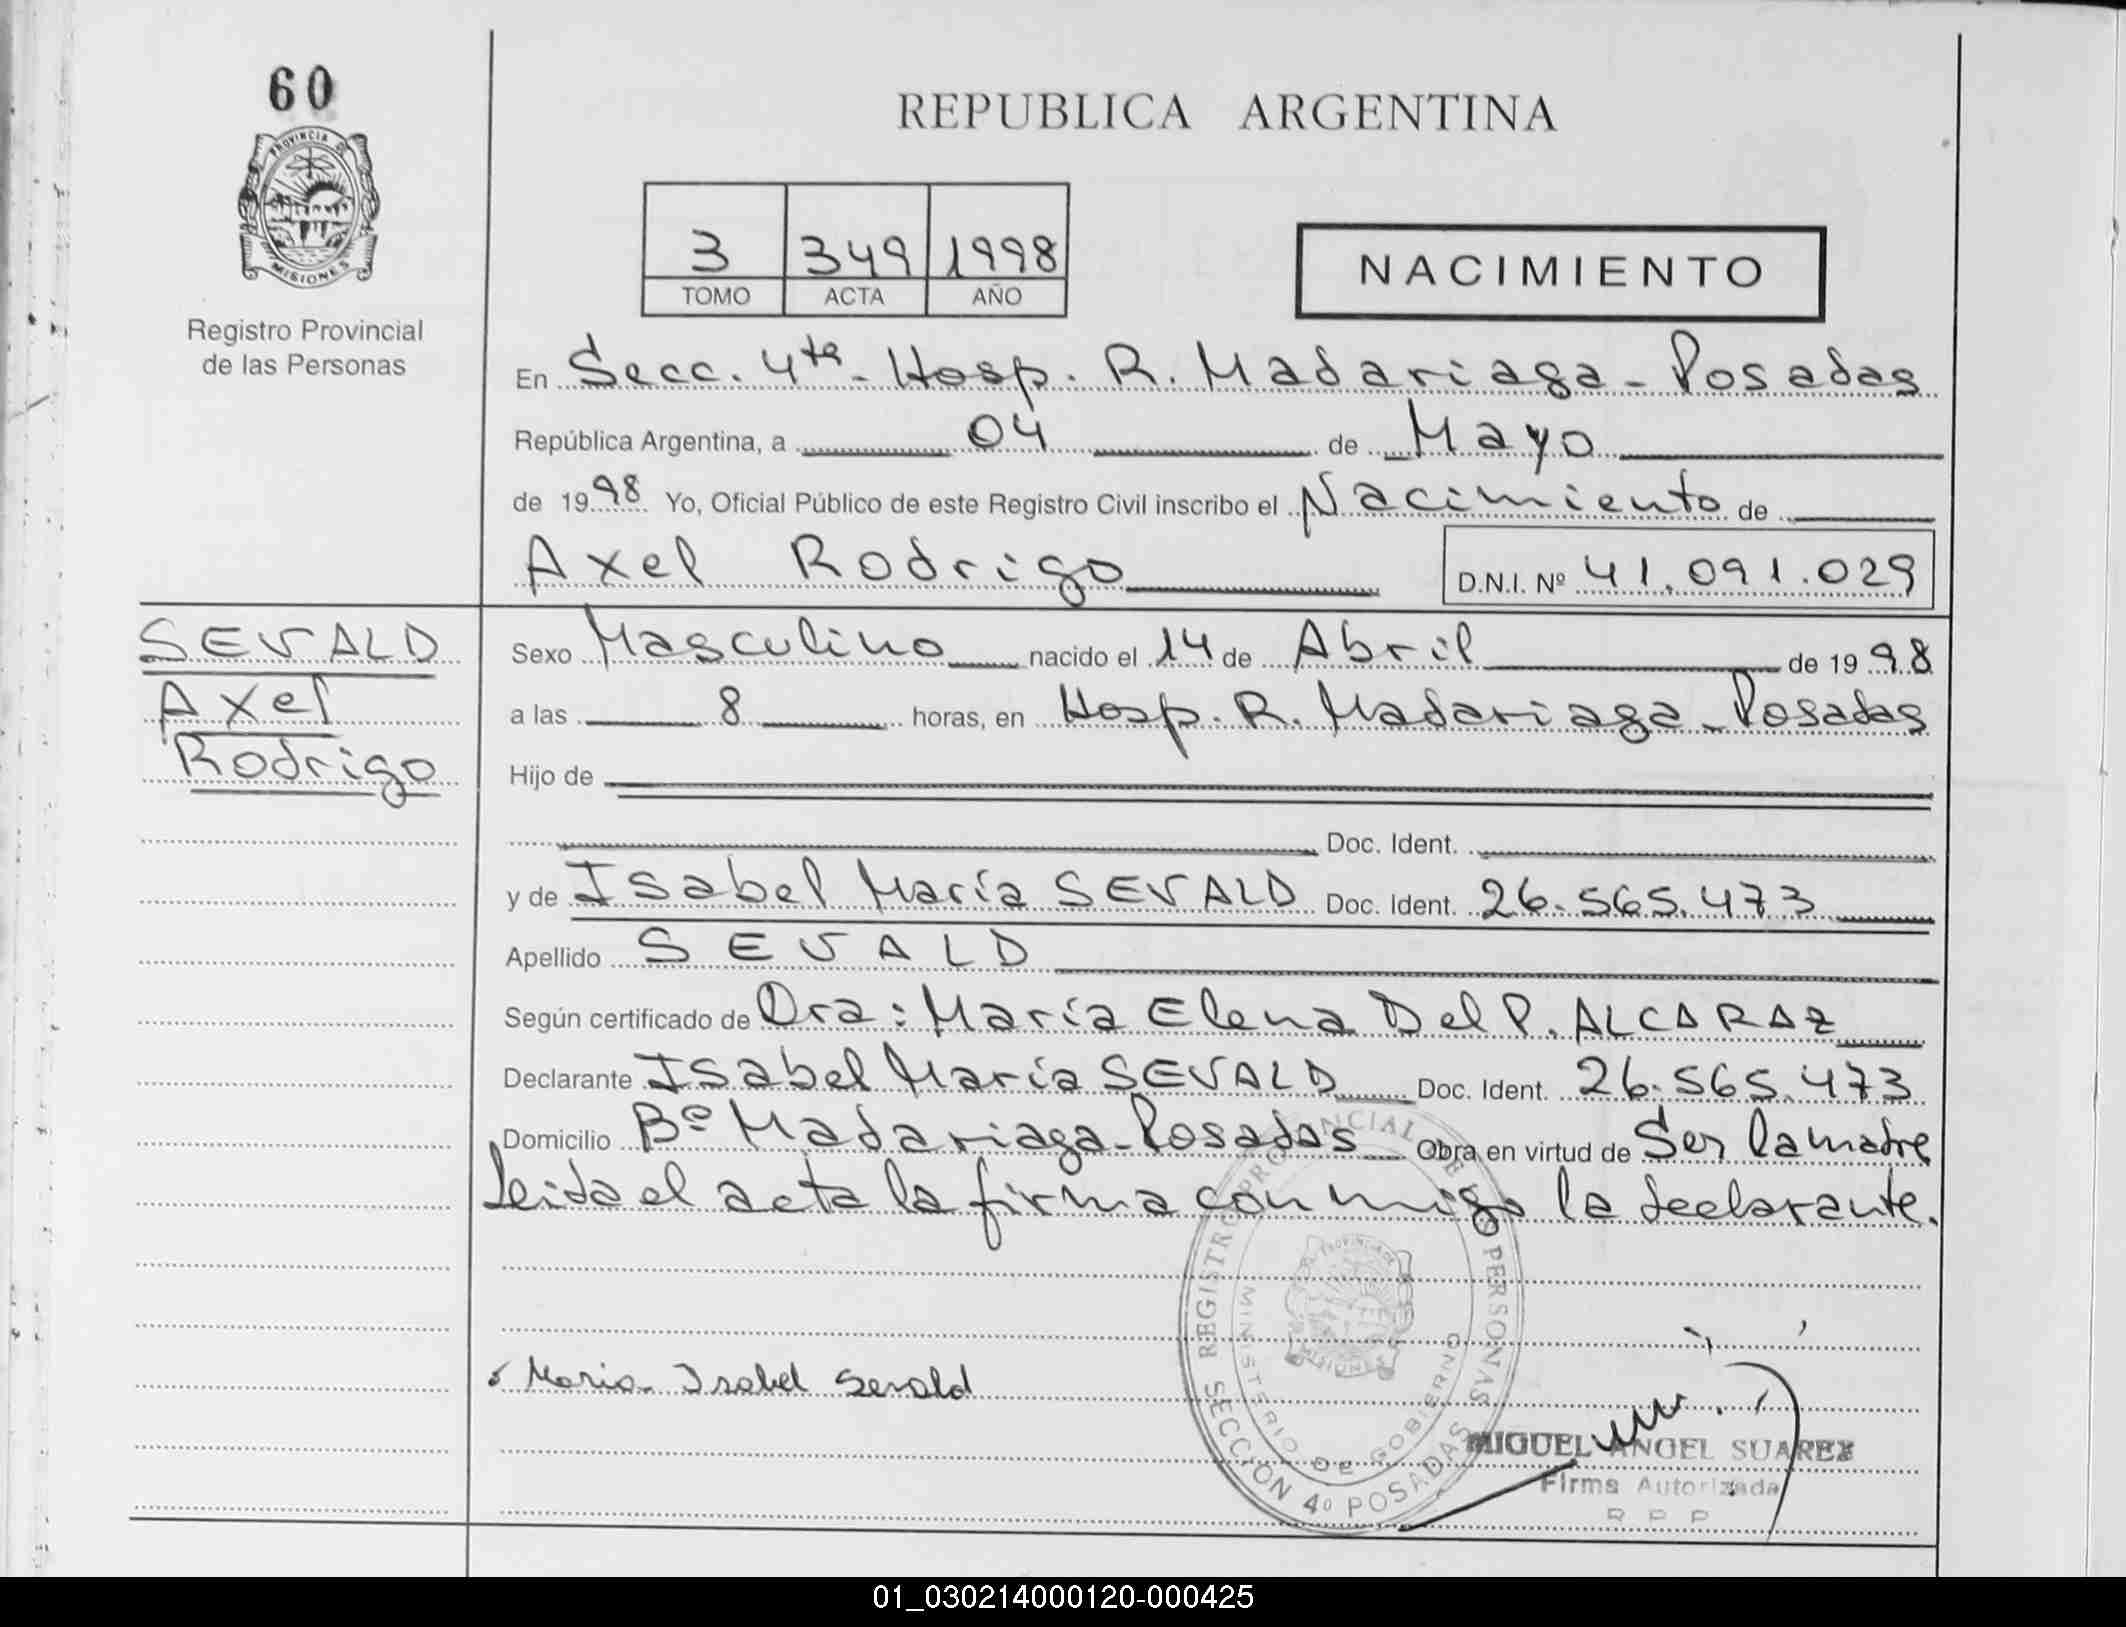 60
PROVINCIA DE
MISIONES
Registro Provincial
de las Personas
REPUBLICA ARGENTINA
3 349 1998
TOMO ACTA AÑO
NACIMIENTO
En Secc. 4ta - Hosp. R. Madariaga - Posadas
República Argentina, a 04 de Mayo
de 1998 Yo, Oficial Público de este Registro Civil inscribo el Nacimiento de
Axel Rodrigo D.N.I. Nº 41.091.029
SEVALD
Axel
Rodrigo
Sexo Masculino nacido el 14 de Abril de 1998
a las 8 horas, en Hosp. R. Madariaga - Posadas
Hijo de
Doc. Ident.
y de Isabel María SEVALD Doc. Ident. 26.565.473
Apellido SEVALD
Según certificado de Dra: María Elena Del P. ALCARAZ
Declarante Isabel María SEVALD Doc. Ident. 26.565.473
Domicilio Bº Madariaga - Posadas Obra en virtud de Ser la madre
Leida el acta la firma conmigo la declarante.
Maria Isabel Sevald
REGISTRO PROVINCIAL DE LAS PERSONAS
MINISTERIO DE GOBIERNO
SECCION 4º POSADAS
MIGUEL ANGEL SUAREZ
Firma Autorizada
R P P
01_030214000120-000425